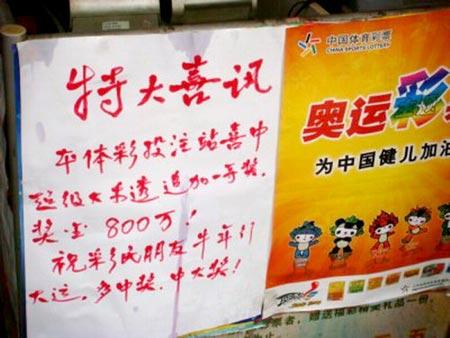 特大喜讯
本体彩投注站喜中
超级大乐透追加一等奖.
奖金800万!
祝彩民朋友牛年行
大运,多中奖.中大奖!
中国体育彩票
CHINA SPORTS LOTTERY
奥运彩
为中国健儿加油